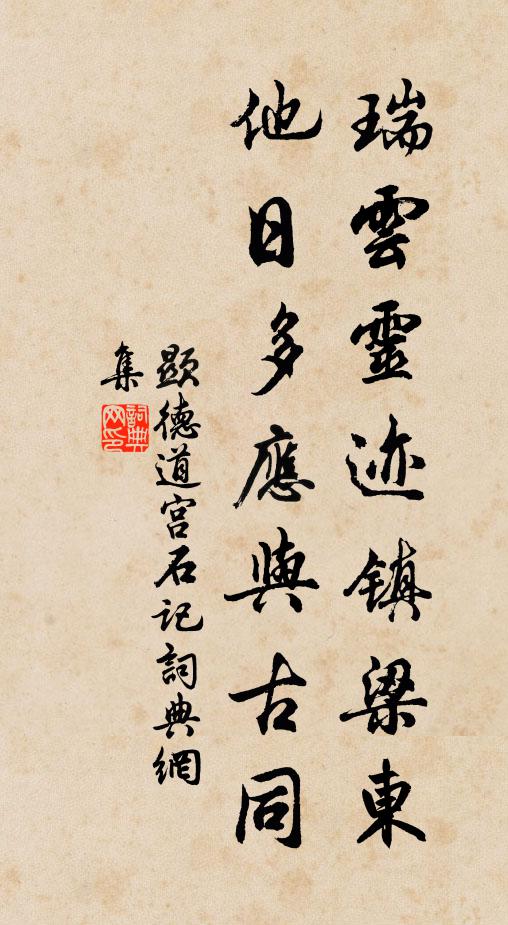 瑞雲靈迹镇梁東
他日多應與古同
顯德道宫石记詞典網
集
詞典网印